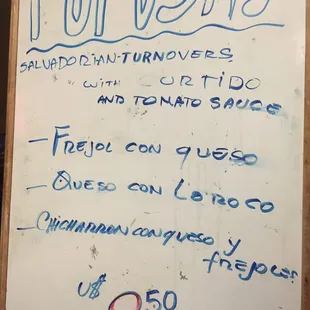 SALVADORIAN-TURNOVERS
WITH CURTIDO
AND TOMATO SAUCE
- FREJOL CON QUESO
- QUESO CON LOROCO
- CHICHARRON CON QUESO Y
FREJOLES
U$
50